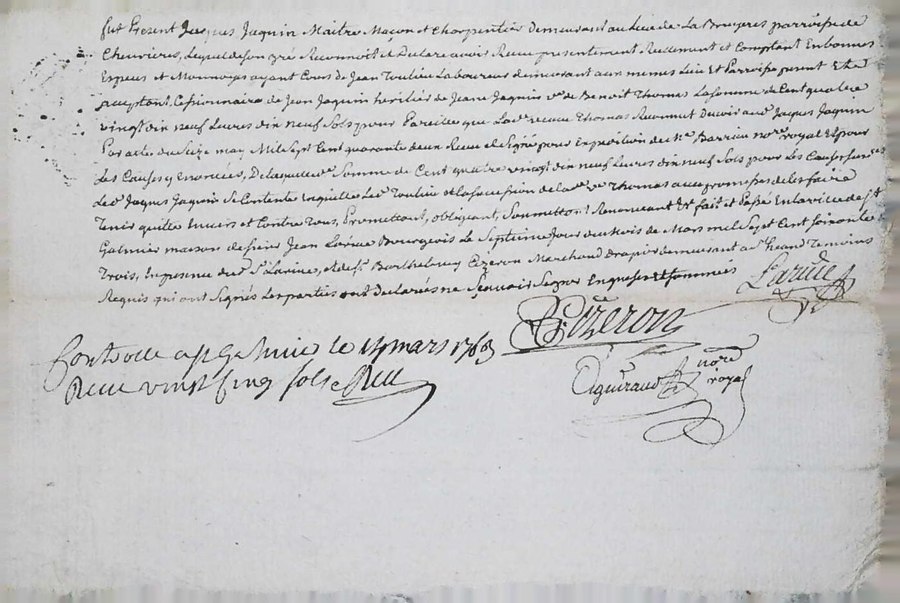 fut Present Jacques Jaquin Maitre Macon et Charpentier demeurant au lieu de La Bruyeres parroisse de
Chevrieres, Lequel de son gré Reconnoit et Declare avoir Reçu presentement Reellement et Comptant En bonnes
Especes et Monnoyes ayant Cours de Jean Toulieu Laboureur demeurant au memes Lieu Et Parroisse present Et
acceptant, Cessionnaire de Jean Jaquin heritier de Jeane Jaquin ve de Benoit Thomas La somme de Cent quatre
vingt dix neuf Livres dix neuf Sols pour Pareille que Lad. veuve Thomas Reconnut devoir aud. Jacques Jaquin
Par acte du Seize may Mil Sept Cent quarante deux Reçu et Signé pour Expedition de Me Barrieu nore royal Et pour
Les Causes y Enoncées, De laquelle Somme de Cent quatre vingt dix neuf Livres dix neuf Sols pour Les Causes
Led. Jacques Jaquin Se Contente Enquitte Led. Toulieu et La succession de Lad. ve Thomas avec promesses de Les faire
Tenir quitte Envers et Contre Tous, Promettant, obligeant, Soumettant Renonceant &a fait et Passé En la ville de St
Galmier maison de Sieur Jean Larüe Bourgeois Le Septieme Jour du Mois de Mars mil Sept Cent Soixante
Trois, En presence dud. Sr Larüe, et de Sr Barthelemy Cizeron Marchand Drapier demeurant aud. St Temoins
Requis qui ont Signés Les parties ont declarées ne Sçavoir Signer Enquises et Sommées
Larüe
Cizeron
Controllé a St Galmier le 14 mars 1763
Reçu vingt cinq sols
Aguiraud nore
royal